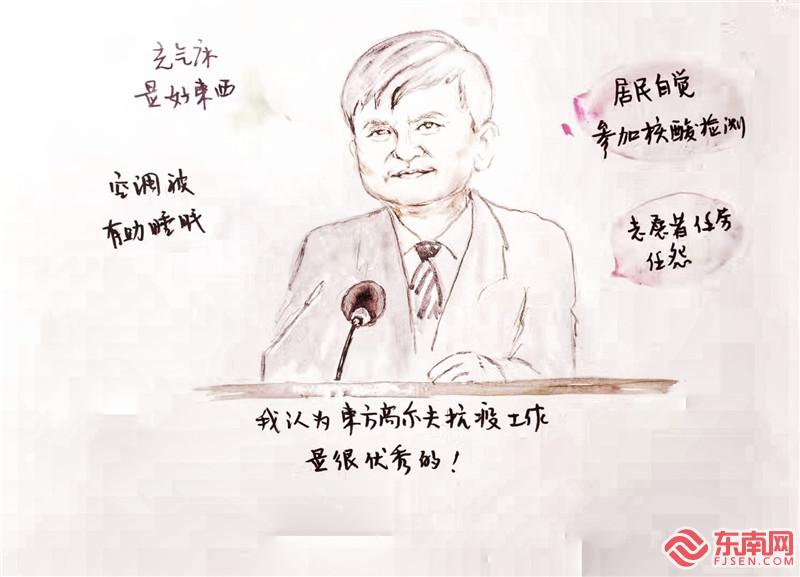 充气床
是好東西
空调被
有助睡眠
居民自觉
参加核酸检测
志愿者任劳
任怨
我认为東方高尔夫抗疫工作
是很优秀的！
东南网
FJSEN.COM